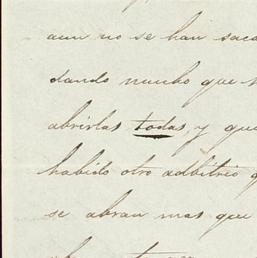 aun no se han saca
dando mucho que
abrirlas todas, y que
habido otro adbitrio q
se abran mas que